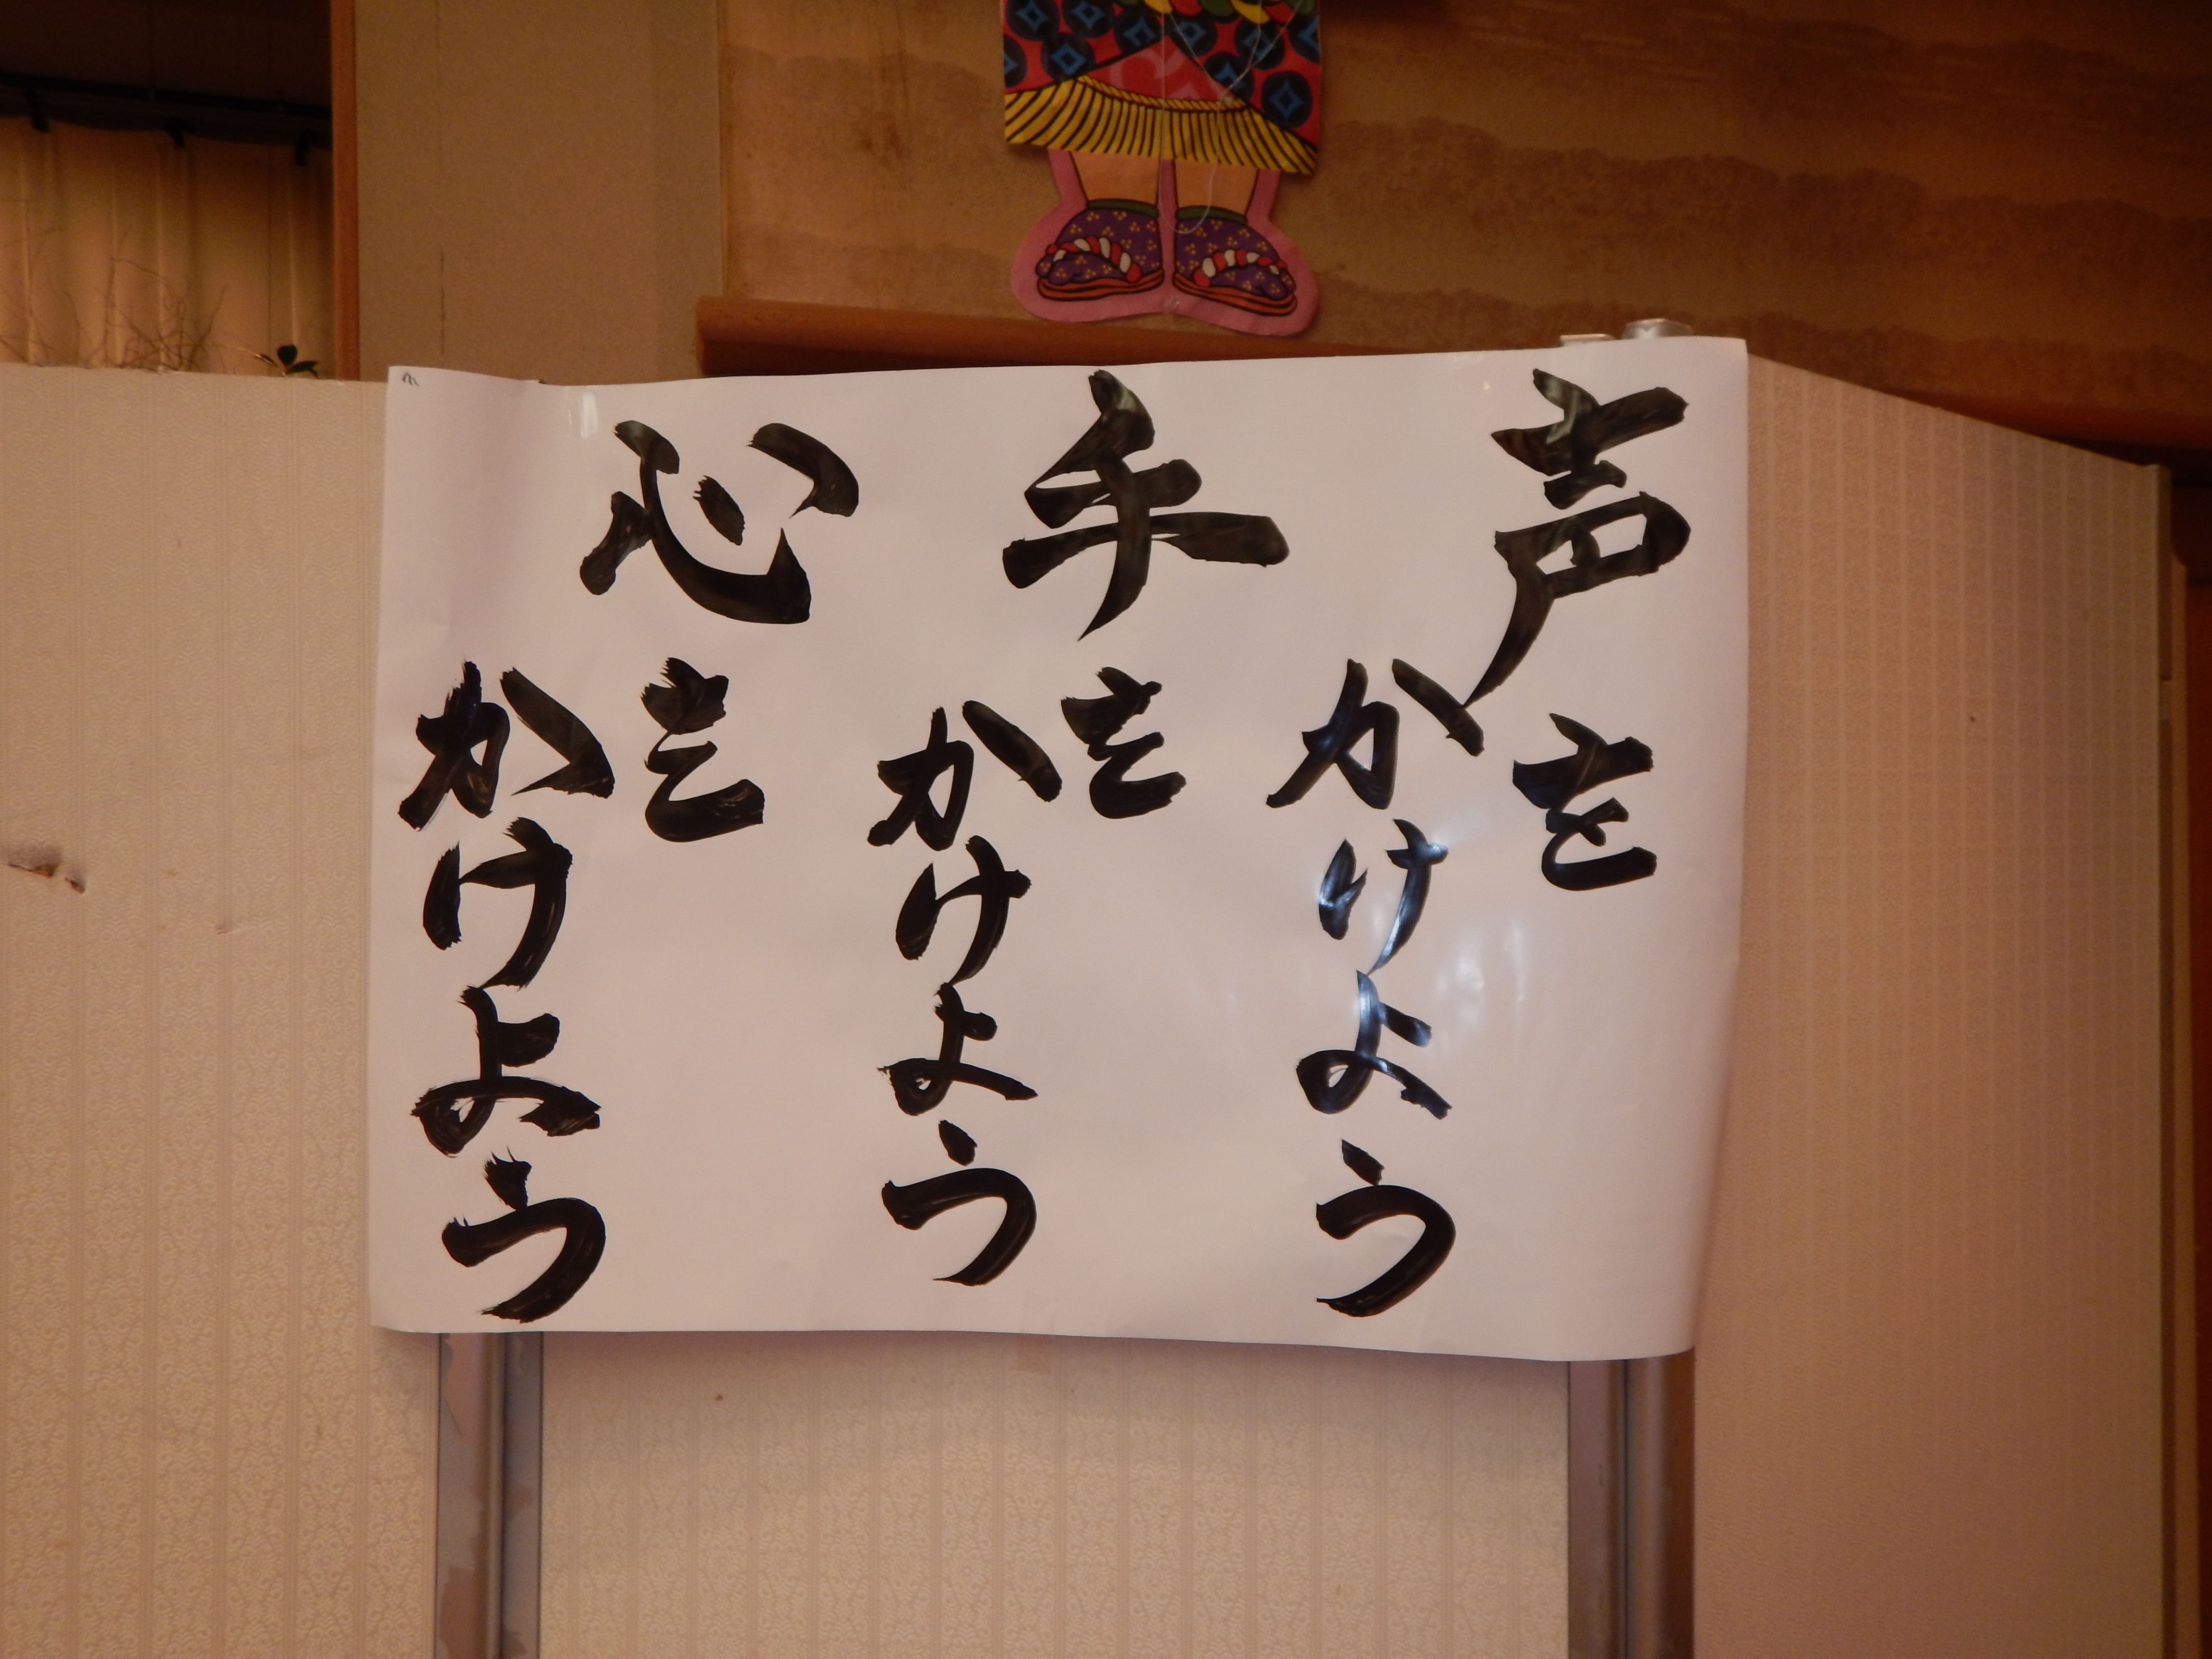 声を
かけよう
手を
かけよう
心を
かけよう